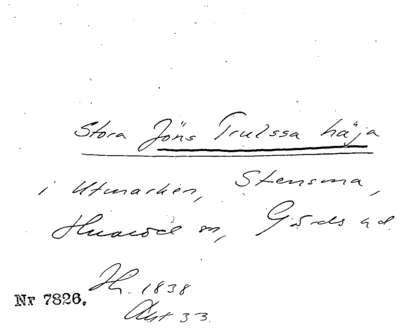 Stora Jöns Trulssa häja
i Utmarken, Stensma,
Huaröd sn, Gärds hd.
H. 1838
Nr 7826.
33.